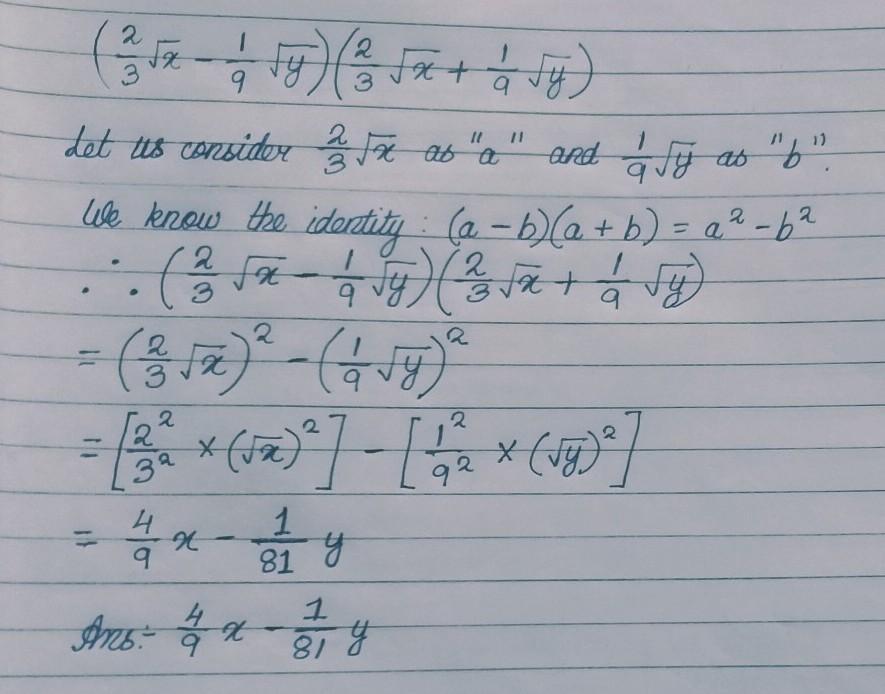 (2/3 √x − 1/9 √y)(2/3 √x + 1/9 √y)
Let us consider 2/3 √x as "a" and 1/9 √y as "b".
We know the identity : (a − b)(a + b) = a² − b²
∴ (2/3 √x − 1/9 √y)(2/3 √x + 1/9 √y)
= (2/3 √x)² − (1/9 √y)²
= [2²/3² × (√x)²] − [1²/9² × (√y)²]
= 4/9 x − 1/81 y
Ans:- 4/9 x − 1/81 y